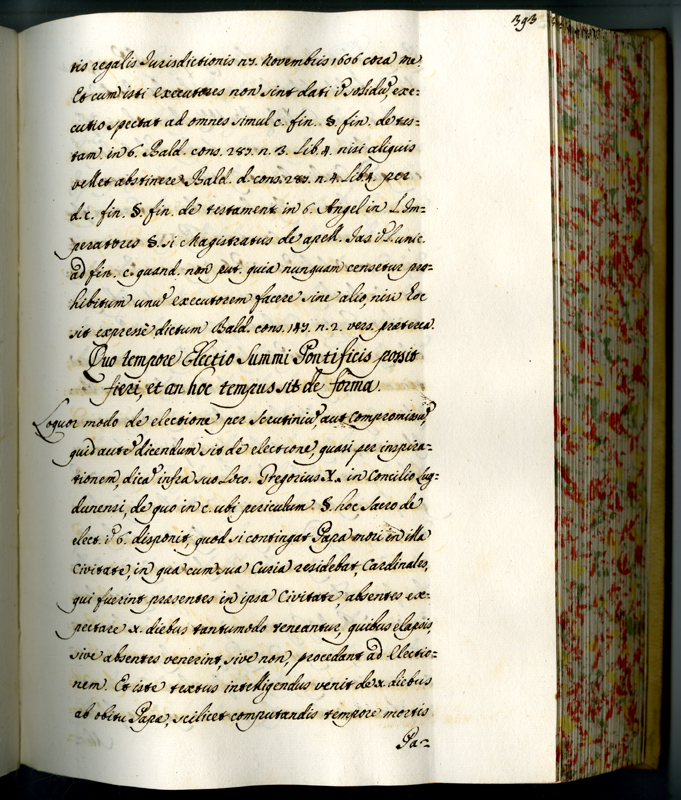 393
tis regalis Jurisdictionis n.7. Novembris 1606 corã me.
Et cum isti executores non sint dati ĩ solidũ, exe=
cutio spectat ad omnes simul c. fin. §. fin. de tes=
tam. in 6. Bald. cons. 287. n. 3. Lib. 4. nisi aliquis
vellet abstinere Bald. d. cons. 287. n. 4. Lib. 4. per
d. c. fin. §. fin. de testament. in 6. Angel. in L. Im=
peratores §. si Magistratus de apell. Jas. ĩ L. unic.
ad fin. c. quand. non pet. quia nunquam censetur pro=
hibitum unũ executorem facere sine alio, nisi hoc
sit expresse dictum Bald. cons. 147. n. 2. vers. præterea.
Quo tempore Electio Summi Pontificis possit
fieri, et an hoc tempus sit de forma.
Loquor modo de electione per Scrutiniũ, aut Compromissũ,
quid autẽ dicendum sit de electione, quasi per inspira=
tionem, dicã infra suo Loco. Gregorius X. in Concilio Lug=
dunensi, de quo in c. ubi periculum. §. hoc Sacro de
elect. ĩ 6. disponit, quod si contingat Papa mori in illa
Civitate, in qua cum sua Curia residebat, Cardinales,
qui fuerint præsentes in ipsa Civitate, absentes ex=
pectare x. diebus tantumodo teneantur, quibus elapsis,
sive absentes venerint, sive non, procedant ad Electio=
nem. Et iste textus intelligendus venit de x. diebus
ab obitu Papæ, scilicet computandis tempore mortis
Pa=